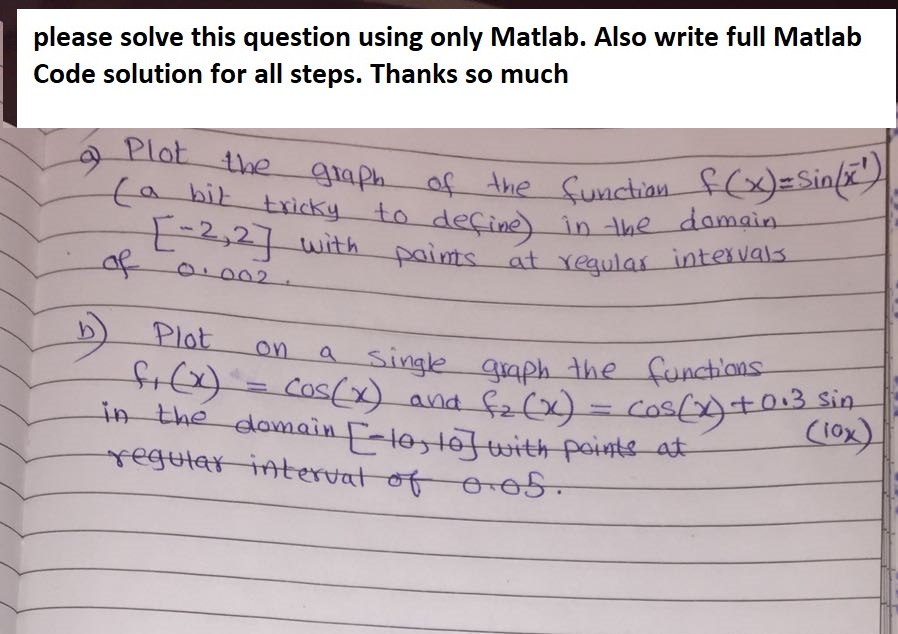 please solve this question using only Matlab. Also write full Matlab
Code solution for all steps. Thanks so much
a) Plot the graph of the function f(x)=sin(x⁻¹)
(a bit tricky to define) in the domain
[-2,2] with points at regular intervals
of 0.002.
b) Plot on a single graph the functions
f₁(x) = cos(x) and f₂(x) = cos(x)+0.3 sin
(10x)
in the domain [-10,10] with points at
regular interval of 0.05.